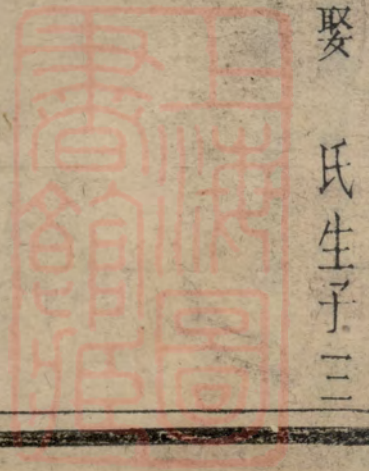 娶　氏生子三
上海圖
書館藏